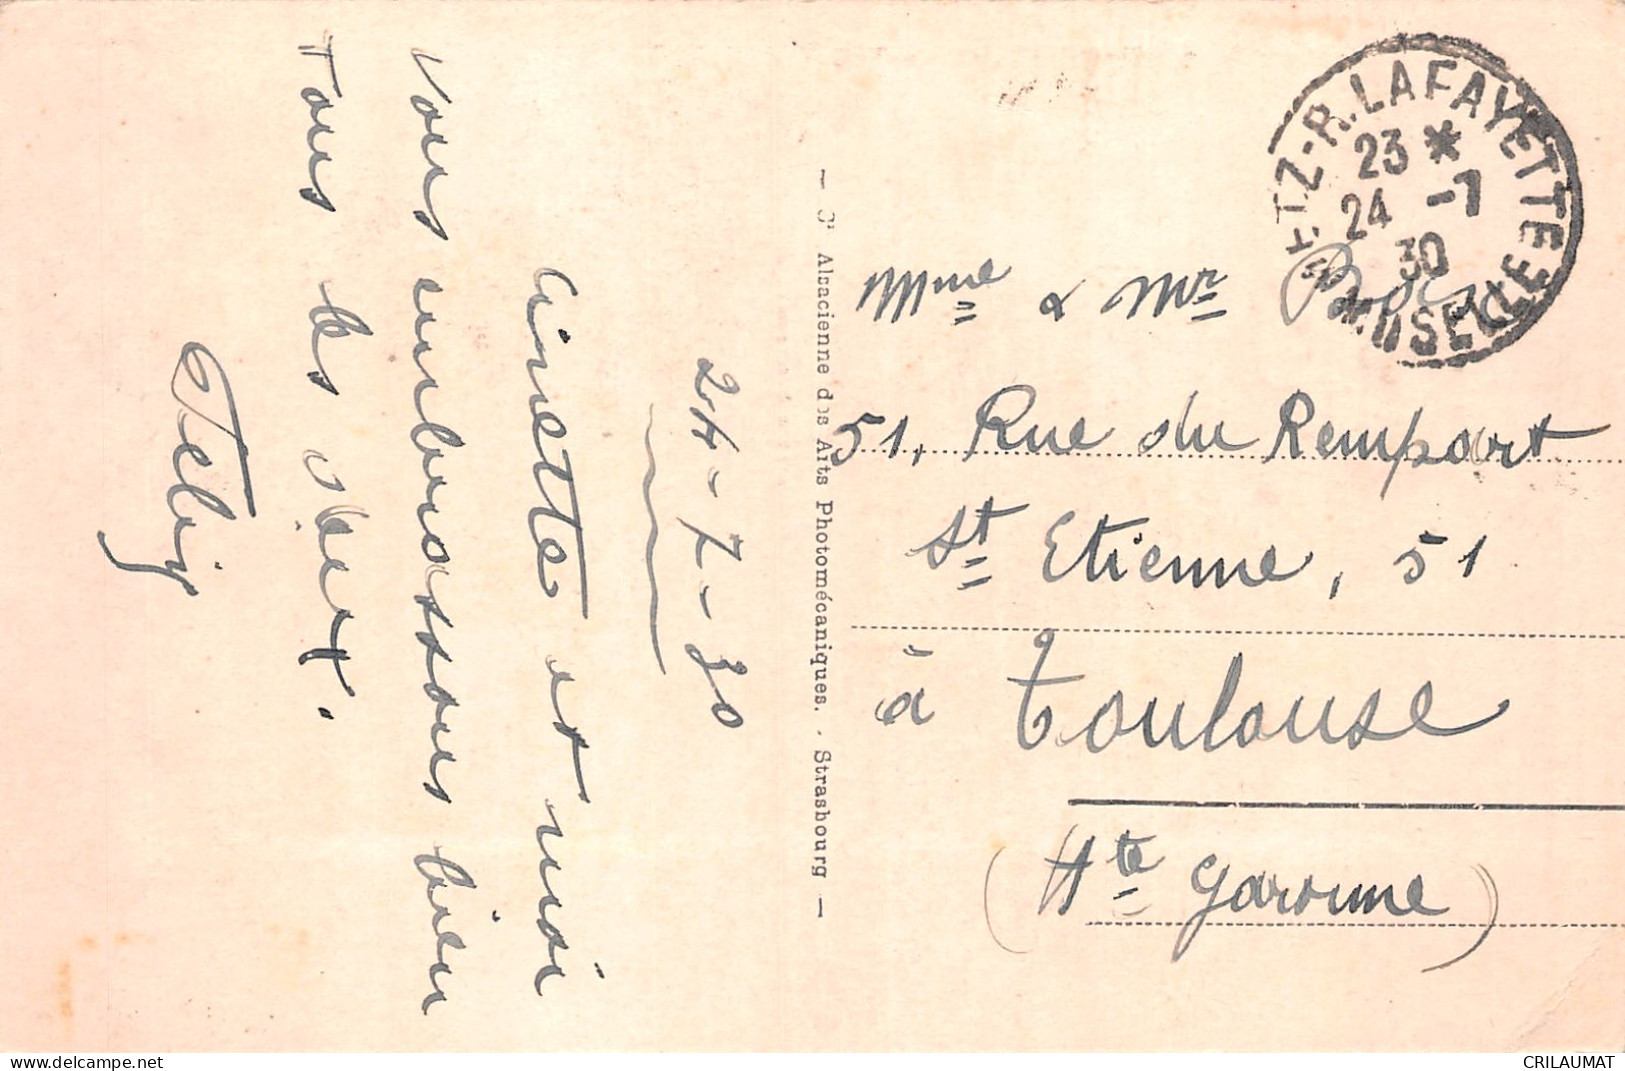 24-7-30
Ginette et moi
vous embrassons bien
Tous les deux.
Félix
— Sté Alsacienne des Arts Photomécaniques. - Strasbourg —
METZ-R. LAFAYETTE
23 *
24 -7
30
MOSELLE
Mme & Mr
51, Rue du Rempart
St Etienne, 51
à Toulouse
(Hte Garonne)
CRILAUMAT
www.delcampe.net